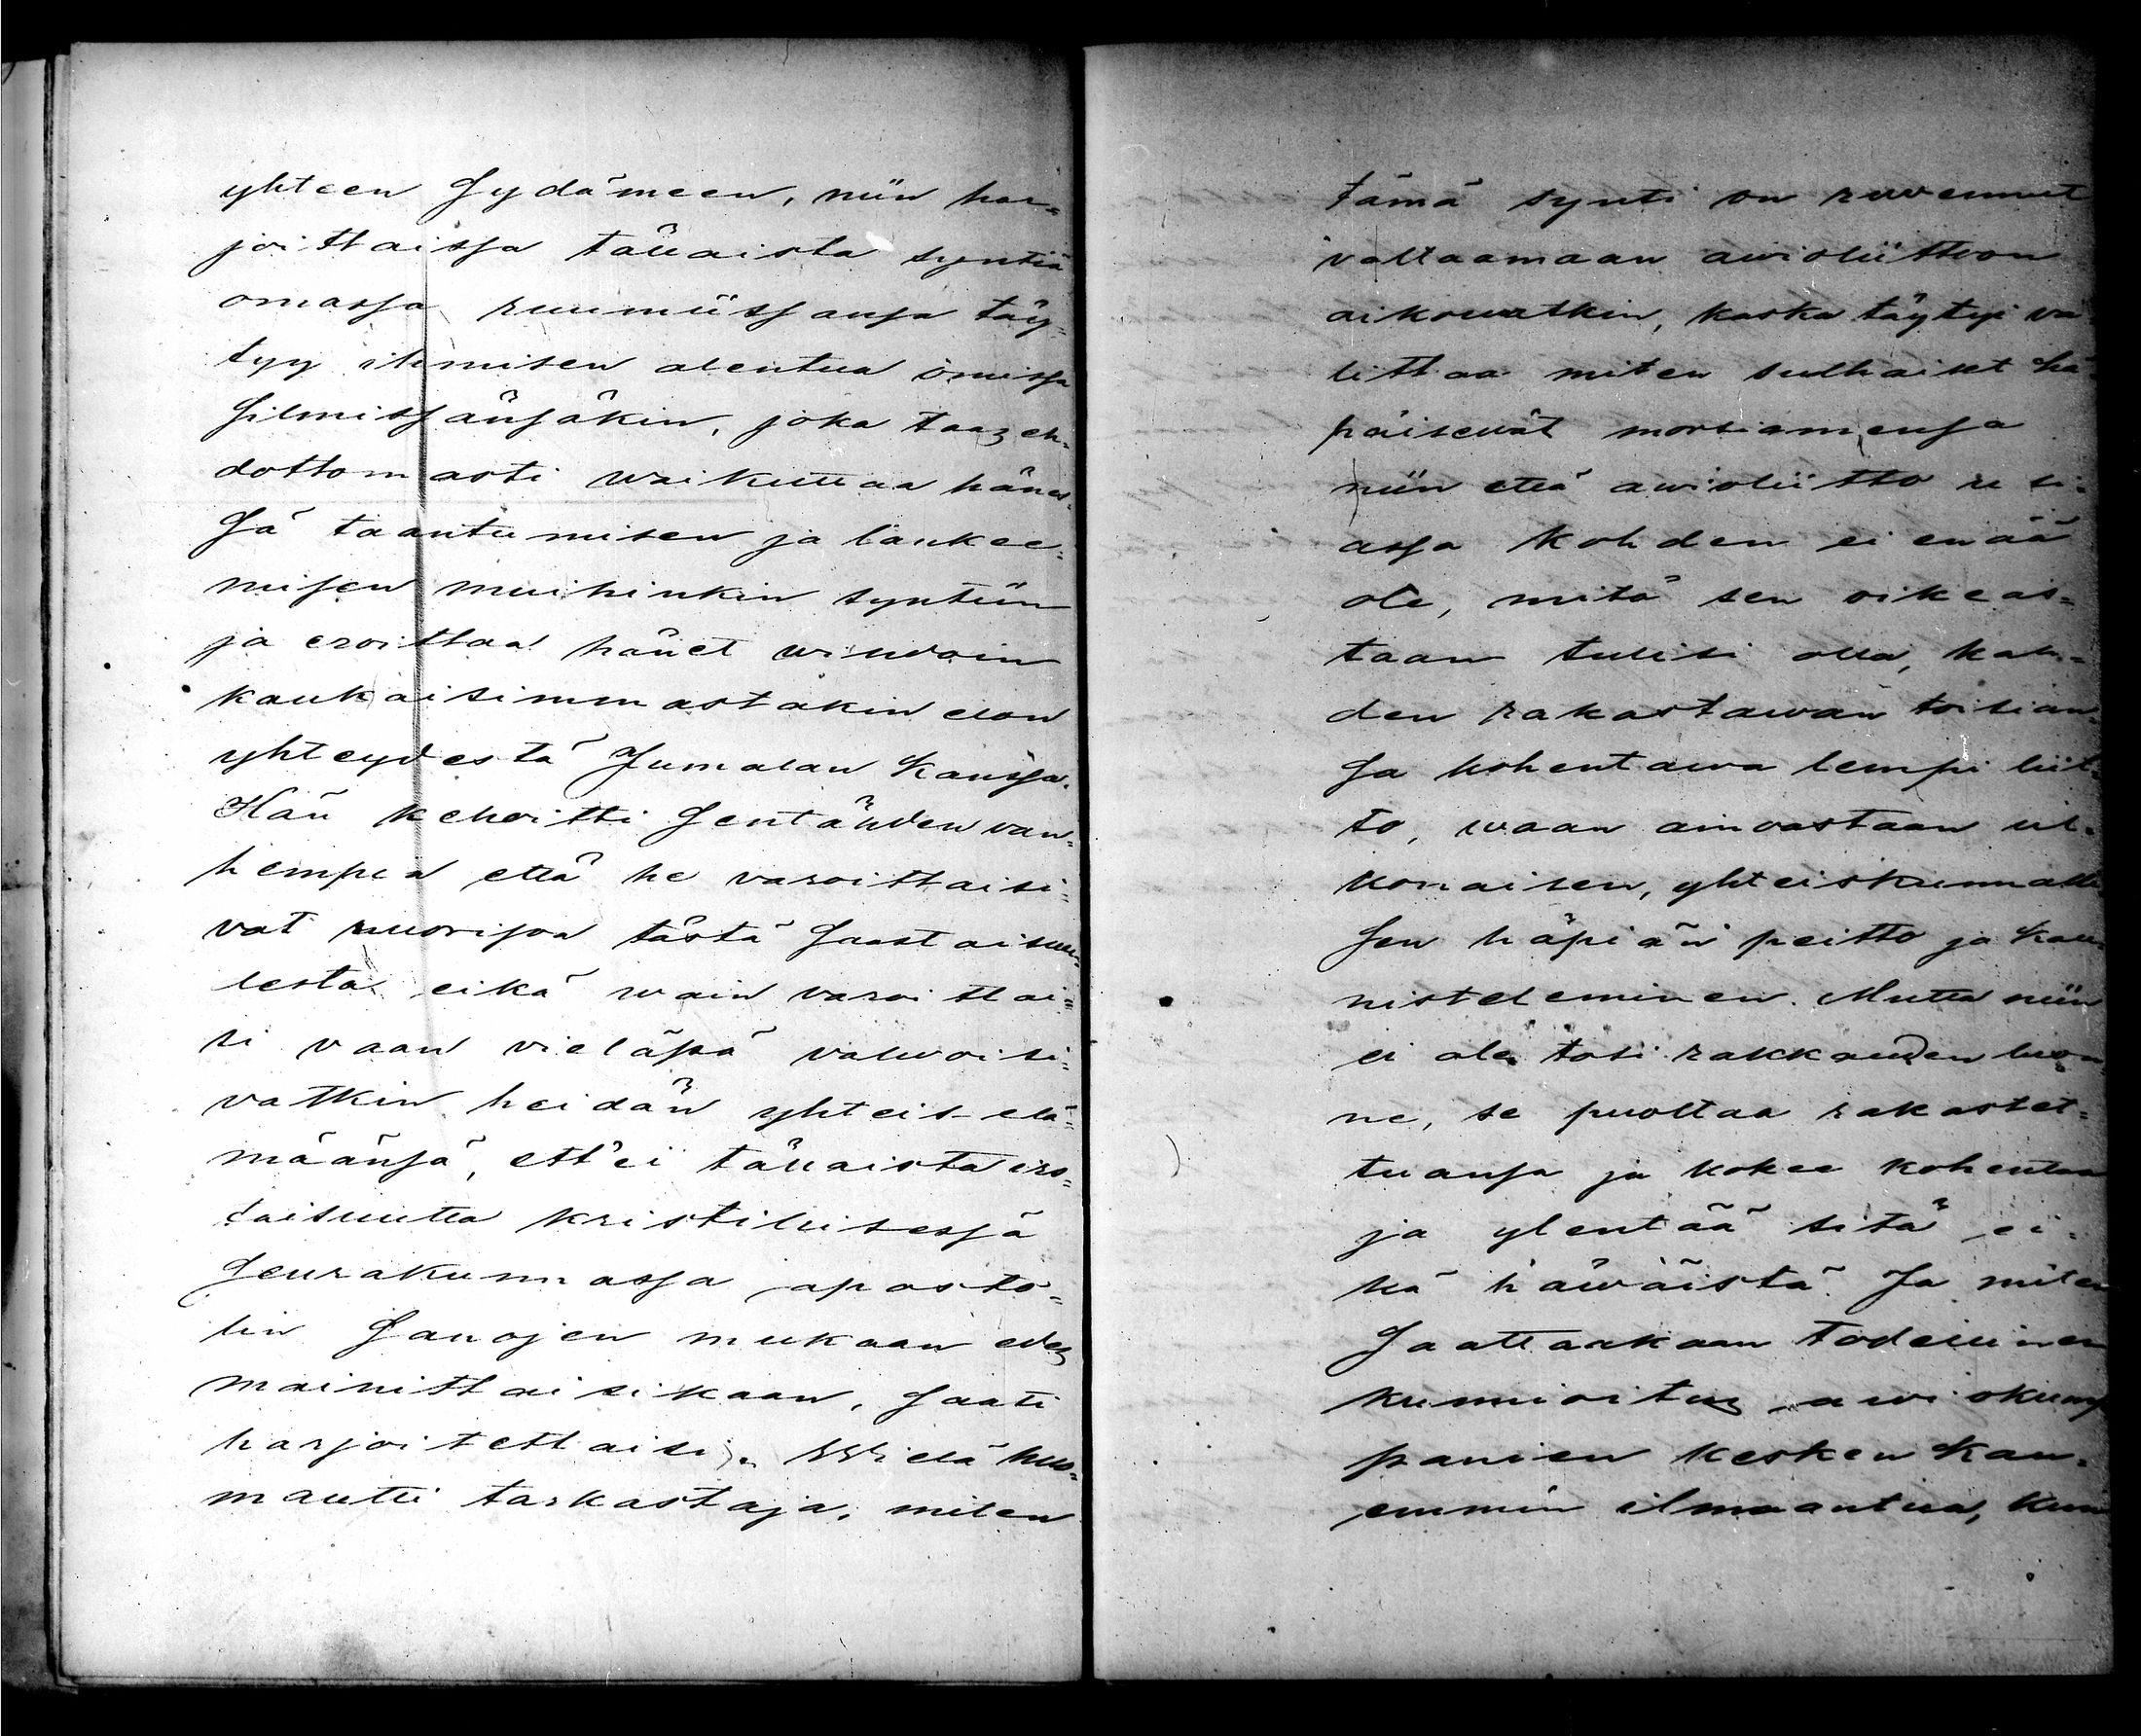 yhteen sydämeen, niin har=
joittaissa tällaista syntiä
omassa ruumiissansa täy=
tyy ihmisen alentua omissa
silmissänsäkin, joka taas eh=
dottomasti waikuttaa hänes=
sä taantumisen ja lankee=
misen muihinkin syntiin
ja eroittaa hänet wihdoin
kaukaisimmastakin elon
yhteydestä Jumalan kanssa.
Hän kehoitti sentähden van=
hempia että he varoittaisi=
vat nuorison tästä saastaisuu=
desta eikä wain varoittai=
si vaan vieläpä valvoisi=
vatkin heidän yhteis-elä=
määnsä, ett'ei tällaista irs=
taisuutta kristillisessä
seurakunnassa aposto=
lin sanojen mukaan edes
mainittaisikaan, saati
harjoitettaisi. Wielä huo=
mautti tarkastaja, miten
tämä synti on ruvennut
valtaamaan awioliittoon
aikovatkin, koska täytyi va=
littaa miten sulhaiset hä=
päisevät morsiamensa
niin että awioliitto u si=
assa kohden ei enää
ole, mitä sen oikeas=
taan tulisi olla, kah=
den rakastawan toisian=
sa kohentawa lempi liit=
to, waan ainoastaan ul=
konaisen, yhteiskunnalli
sen häpiän peitto ja kau=
nisteleminen. Mutta niin
ei ole tosi rakkauden luon
ne, se puoltaa rakastet=
tuansa ja kokee kohentaa
ja ylentää sitä ei=
kä häwäistä. Ja miten
saattaakaan todellinen
kunnioitus awiokump
panien kesken kau=
emmin ilmaantua, kun